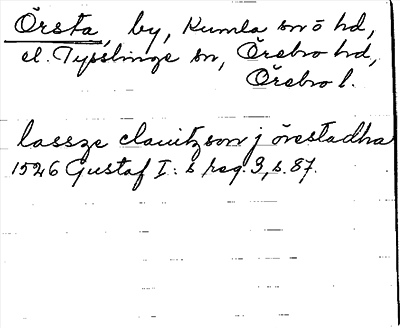 Örsta, by, Kumla sn o hd,
el. Tysslinge sn, Örebro hd,
Örebro l.
lassze clauitzson j örestadha
1526 Gustaf I:s reg. 3, s. 87.